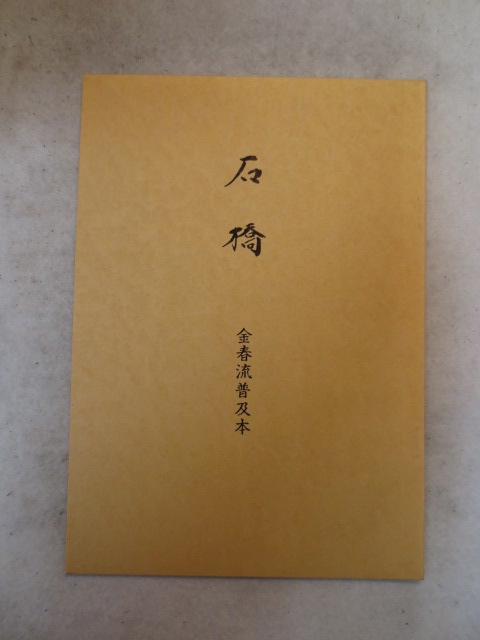 石橋
金春流普及本